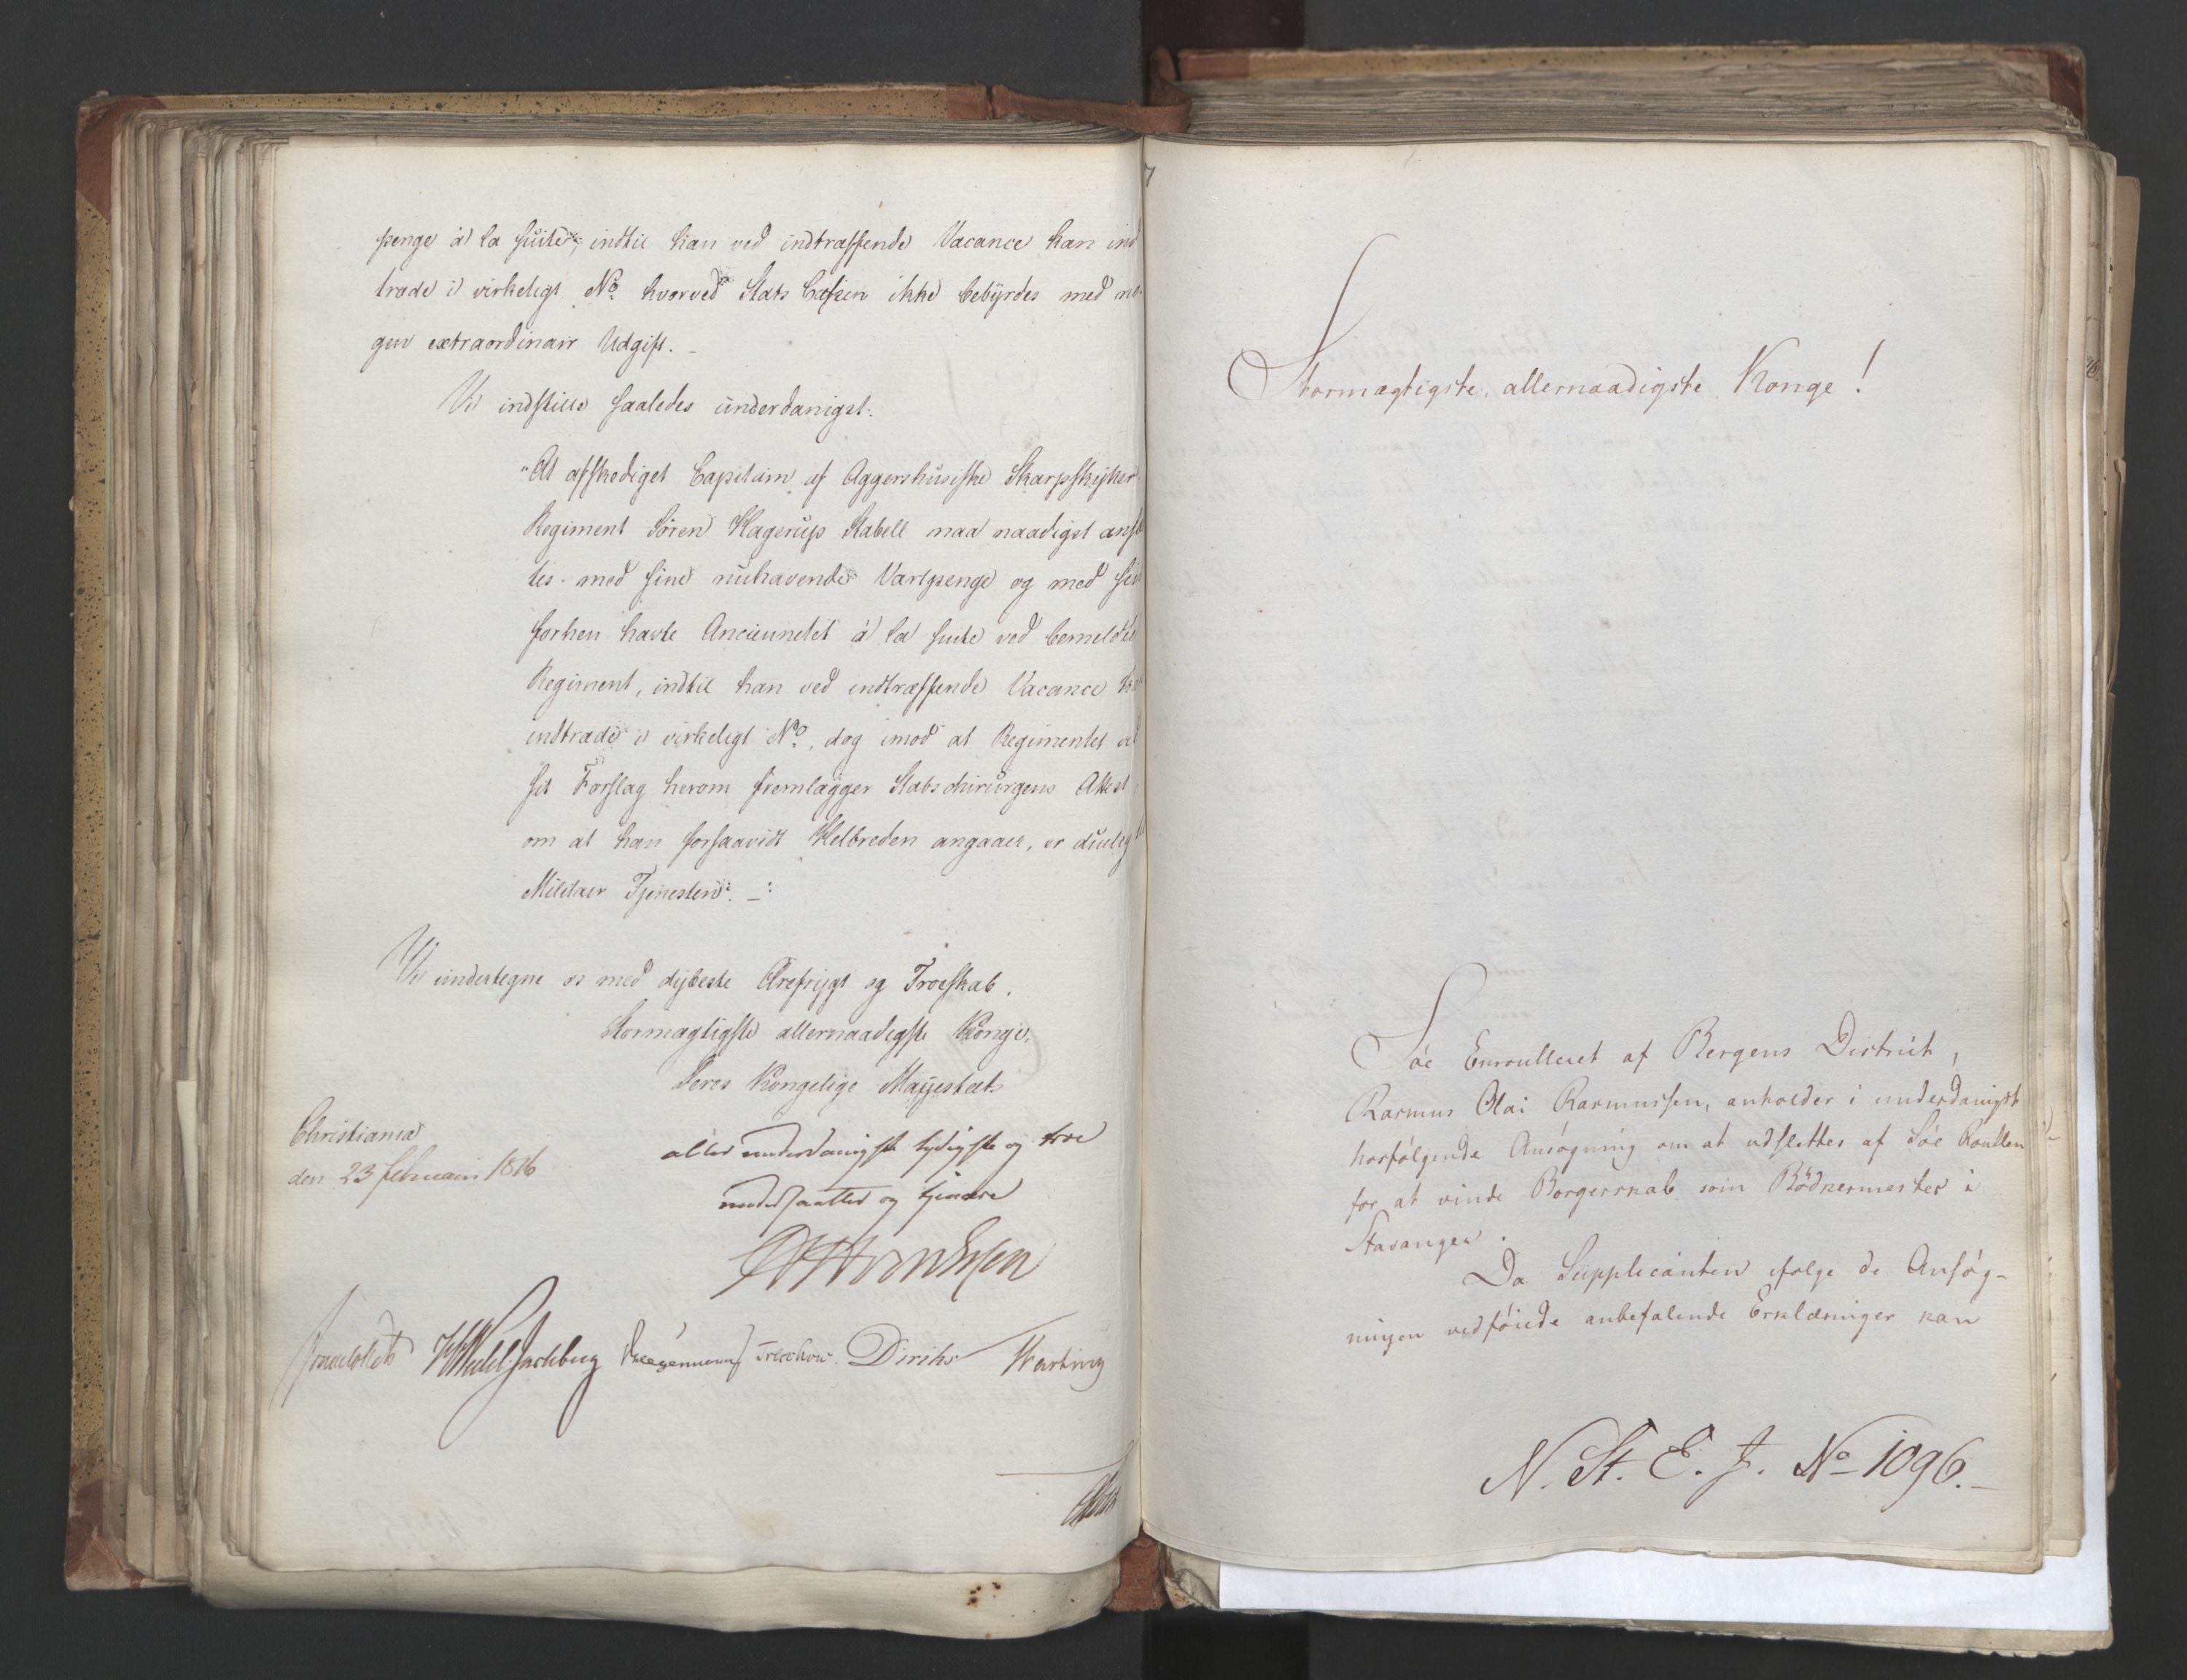 penge à la suite, indtil han ved indtræffende Vacance kan ind
træde i virkeligt No. hvorved Stats Cassen ikke bebyrdes med no-
gen extraordinair Udgift. -
Vi indstille saaledes underdanigst:
"At afskediget Capitain af Aggershusiske Skarpskytter
Regiment Sören Hagerup Stabell maa naadigst ansæt
tes med sine nuhavende Vartpenge og med sin
forhen havte Anciennetet à la suite ved bemeldte
Regiment, indtil han ved indtræffende Vacance kan
indtræde i virkeligt No., dog imod at Regimentet ved
sit Forslag herom fremlægger Stabschirurgens Attest
om at han forsaavidt Helbreden angaaer, er duelig
Militair Tjenesten". -:
Vi undertegne os med dybeste Ærefrygt og Troeskab.
Stormægtigste allernaadigste Konge,
Deres Kongelige Mayestæts
Christiania
den 23 februari 1816
allerunderdanigste lydigste og troe
undersaatter og tjenere
Sommerhielm HWedelJarlsberg Treschow Diriks Hartwig
7
Stormægtigste, allernaadigste Konge!
Söe Enroulleret af Bergens District,
Rasmus Olai Rasmussen, anholder i underdanigst
hosfölgende Ansögning om at udslettes af Söe Roullen
for at vinde Borgerskab som Bödkermester i
Stavanger.
Da Supplicanten ifölge de Ansög-
ningen vedföiede anbefalende Erklæringer kan
N. St. E. J. No 1096.-